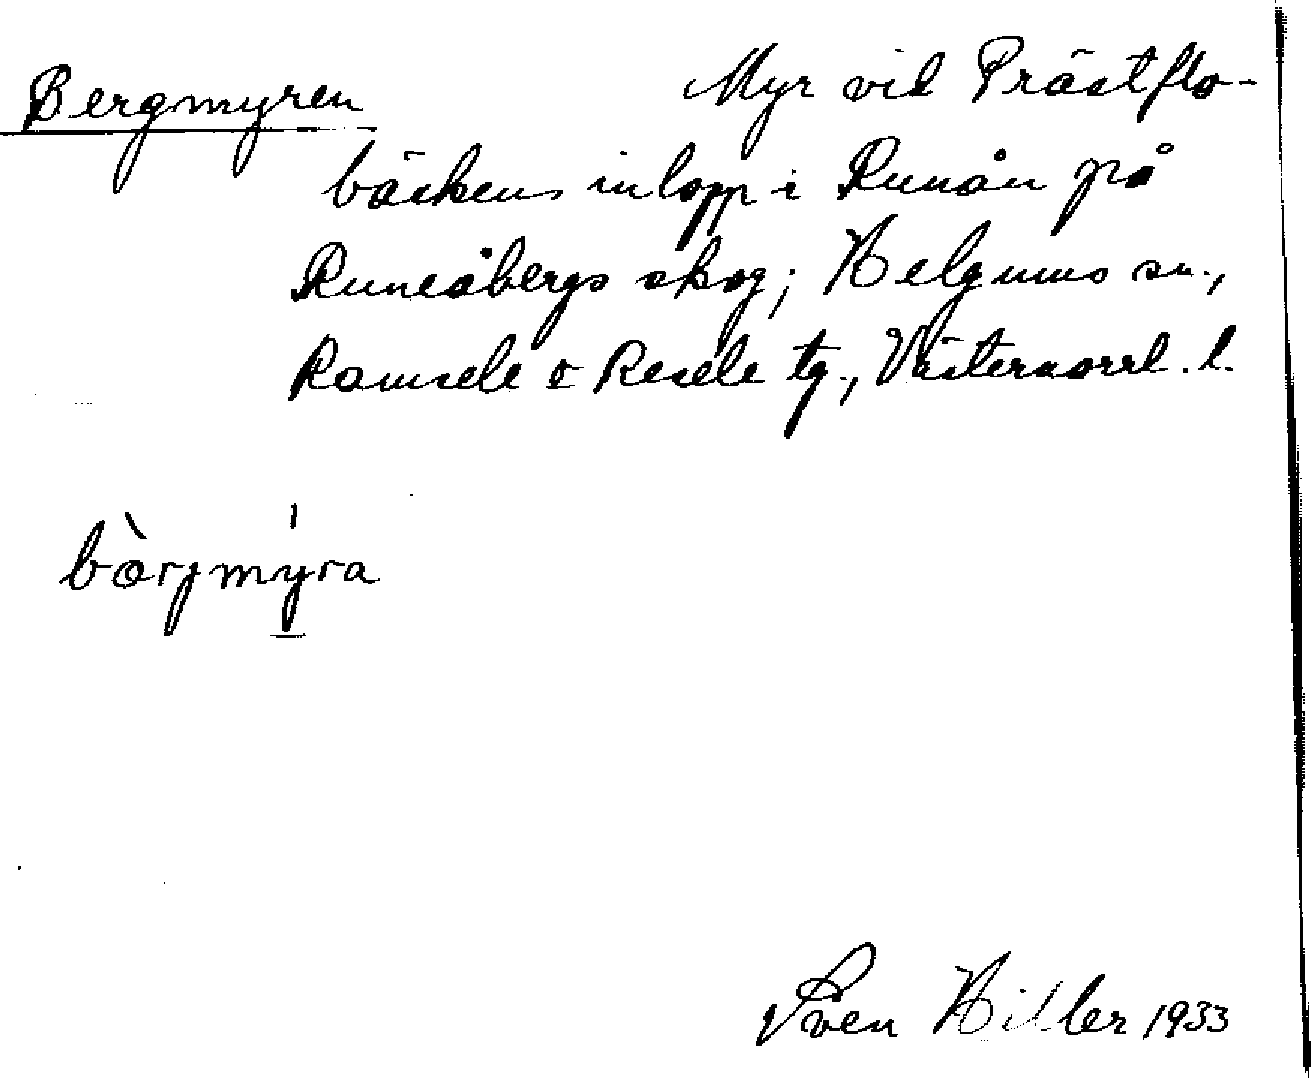 Bergmyren Myr vid Prästflo-
bäckens inlopp i Runån på
Runeåbergs skog; Helgums sn.,
Ramsele o Resele tg., Västernorrl. l.
bàrjmy̱ra
Sven Hiller 1933